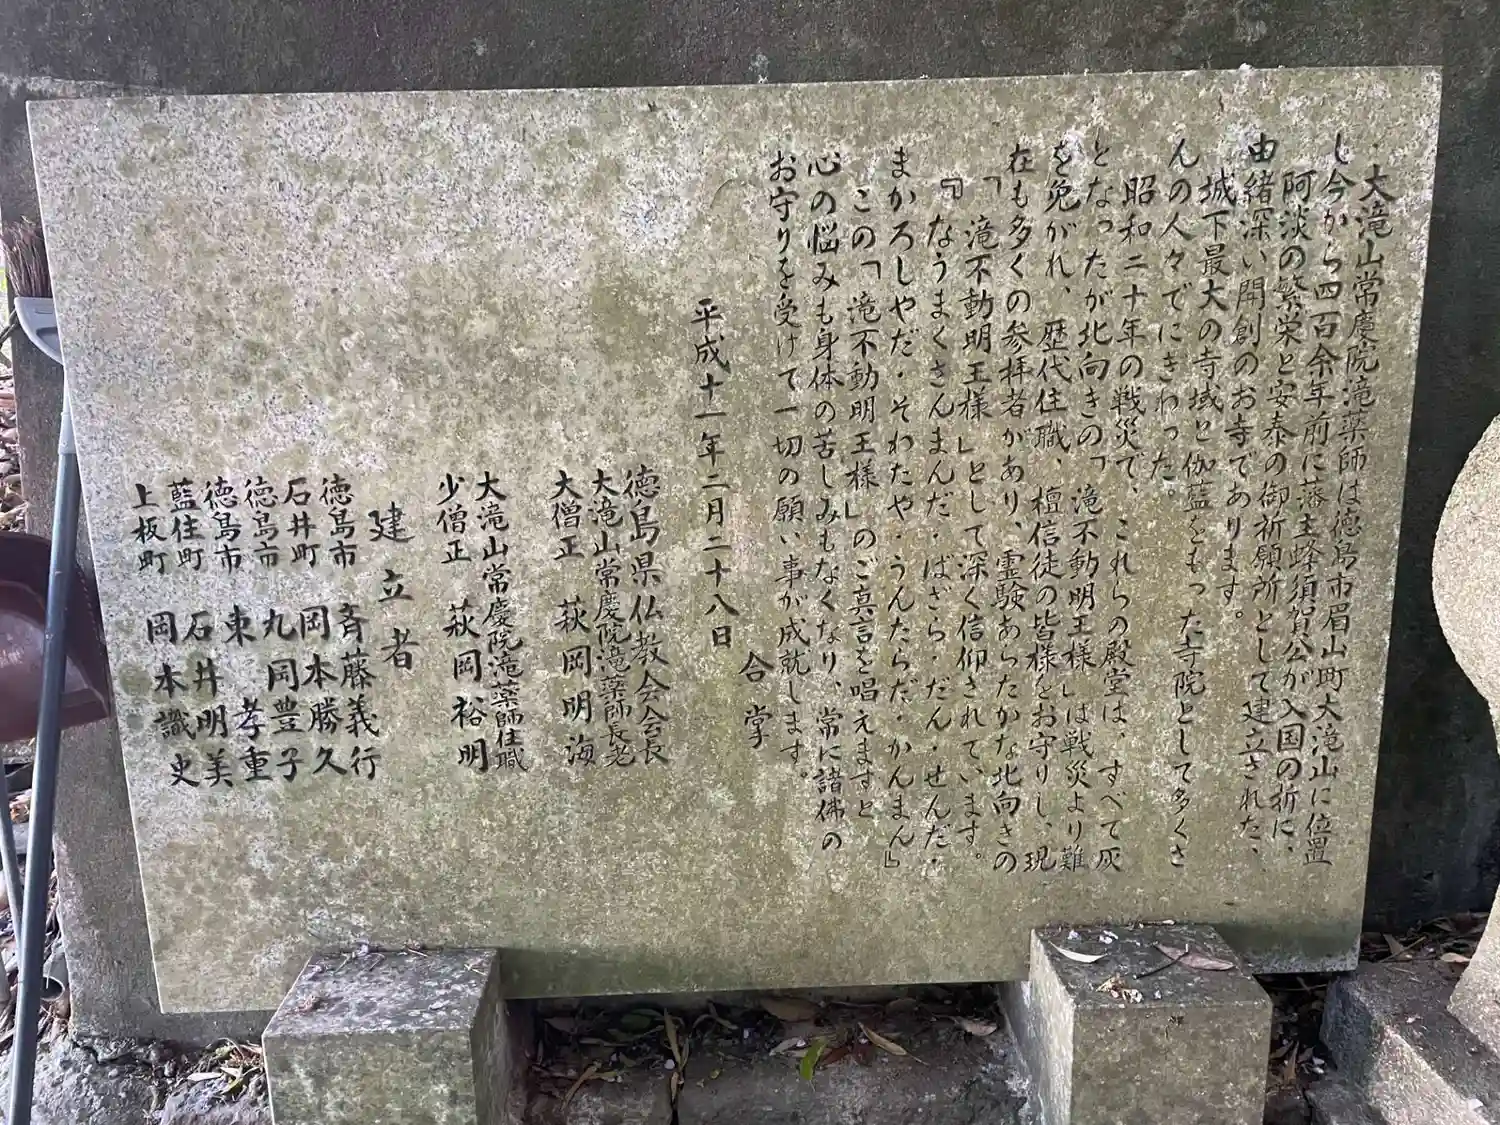 大滝山常慶院滝薬師は徳島市眉山町大滝山に位置
し今から四百余年前に藩主蜂須賀公が入国の折に、
阿淡の繁栄と安泰の御祈願所として建立された、
由緒深い開創のお寺であります。
城下最大の寺域と伽藍をもった寺院として多くさ
んの人々でにぎわった。
昭和二十年の戦災で、これらの殿堂は、すべて灰
となったが北向きの「滝不動明王様」は戦災より難
を免がれ、歴代住職、檀信徒の皆様をお守りし、現
在も多くの参拝者があり、霊験あらたかな北向きの
「滝不動明王様」として深く信仰されています。
『なうまくさんまんだ・ばざら・だん・せんだ・
まかろしやだ・そわたや・うんたらだ・かんまん』
この「滝不動明王様」のご真言を唱えますと
心の悩みも身体の苦しみもなくなり、常に諸佛の
お守りを受けて一切の願い事が成就します。
合掌
平成十一年二月二十八日
徳島県仏教会会長
大滝山常慶院滝薬師長老
大僧正 萩岡明海
大滝山常慶院滝薬師住職
少僧正 萩岡裕明
建立者
徳島市 斉藤義行
石井町 岡本勝久
徳島市 丸岡豊子
徳島市 東孝重
藍住町 石井明美
上板町 岡本識史